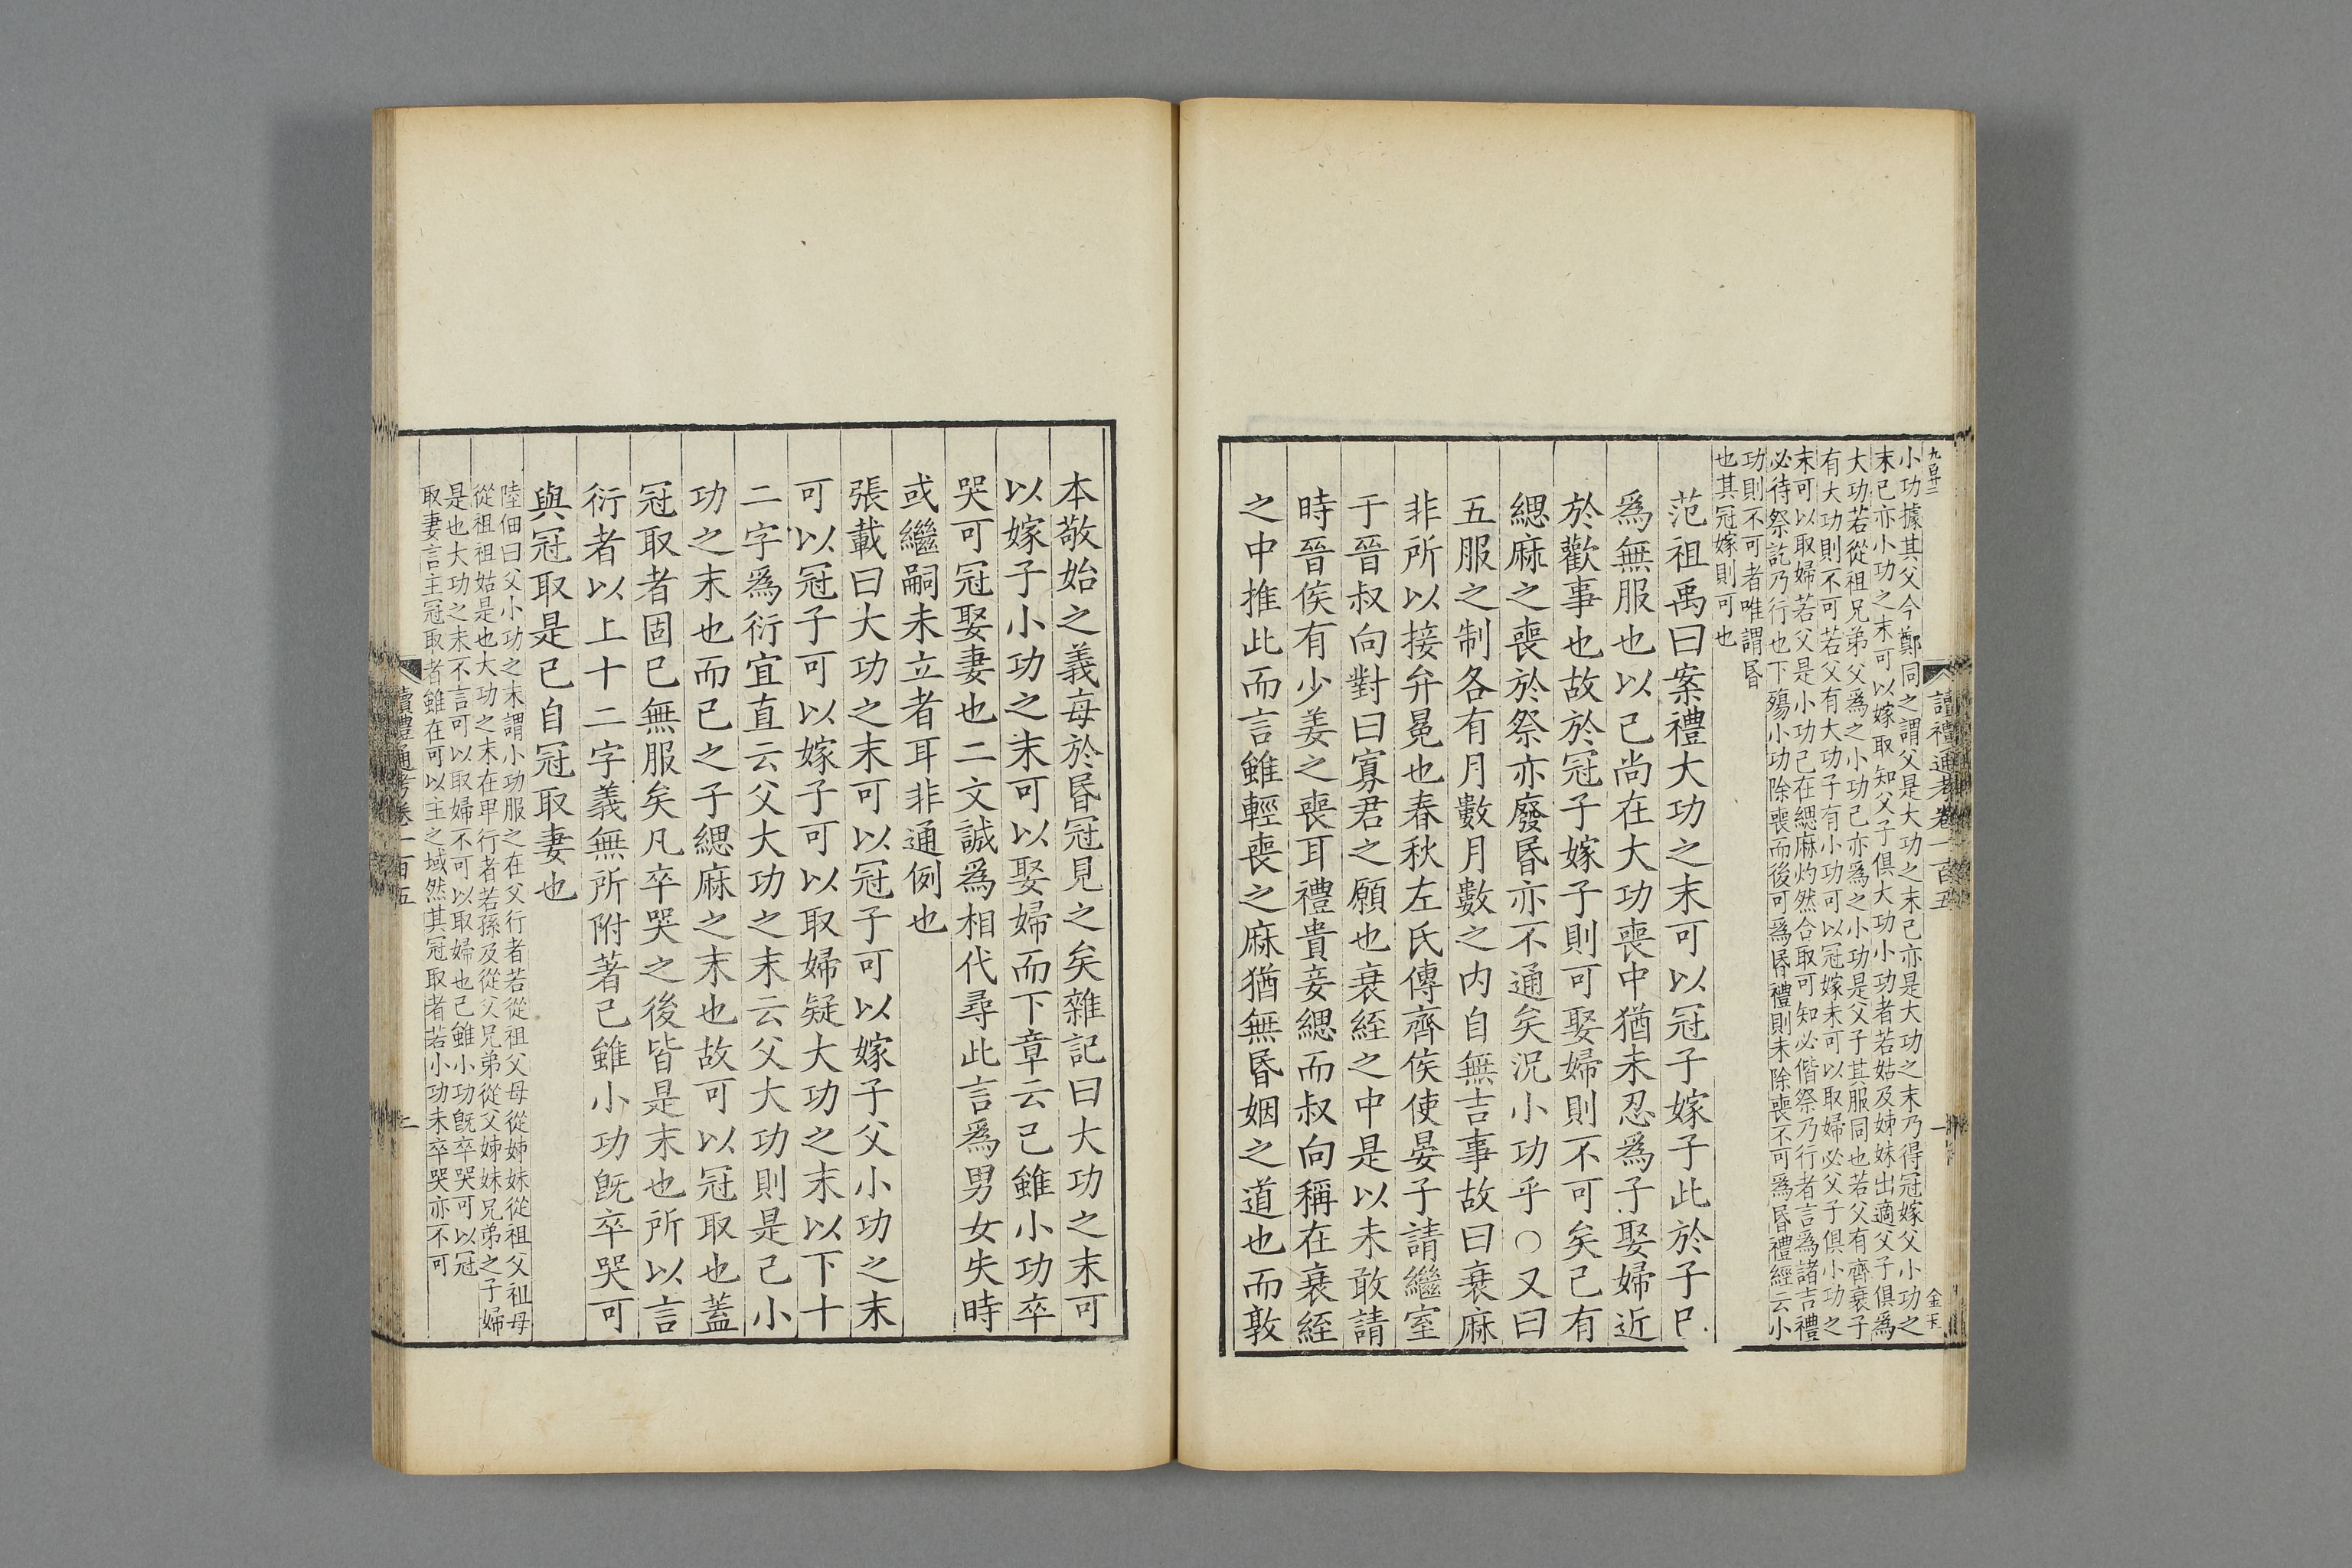 九百廿二
讀禮通考卷一百五
一
金玉
小功據其父今鄭同之謂父是大功之末己亦是大功之末乃得冠嫁父小功之
末己亦小功之末可以嫁取知父子俱大功小功者若姑及姊妹出適父子俱爲
大功若從祖兄弟父爲之小功己亦爲之小功是父子其服同也若父有齊衰子
有大功則不可若父有大功子有小功可以冠嫁未可以取婦必父子俱小功之
末可以取婦若父是小功己在緦麻灼然合取可知必偕祭乃行者言爲諸吉禮
必待祭訖乃行也下殤小功除喪而後可爲昏禮則未除喪不可爲昏禮經云小
功則不可者唯謂昏
也其冠嫁則可也
范祖禹曰案禮大功之末可以冠子嫁子此於子已
爲無服也以己尚在大功喪中猶未忍爲子娶婦近
於歡事也故於冠子嫁子則可娶婦則不可矣己有
緦麻之喪於祭亦廢昏亦不通矣況小功乎○又曰
五服之制各有月數月數之内自無吉事故曰衰麻
非所以接弁冕也春秋左氏傳齊侯使晏子請繼室
于晉叔向對曰寡君之願也衰絰之中是以未敢請
時晉侯有少姜之喪耳禮貴妾緦而叔向稱在衰絰
之中推此而言雖輕喪之麻猶無昏姻之道也而敦
本敬始之義每於昏冠見之矣雜記曰大功之末可
以嫁子小功之末可以娶婦而下章云己雖小功卒
哭可冠娶妻也二文誠爲相代尋此言爲男女失時
或繼嗣未立者耳非通例也
張載曰大功之末可以冠子可以嫁子父小功之末
可以冠子可以嫁子可以取婦疑大功之末以下十
二字爲衍宜直云父大功之末云父大功則是己小
功之末也而己之子緦麻之末也故可以冠取也蓋
冠取者固已無服矣凡卒哭之後皆是末也所以言
衍者以上十二字義無所附著己雖小功旣卒哭可
與冠取是己自冠取妻也
陸佃曰父小功之末謂小功服之在父行者若從祖父母從姊妹從祖父祖母
從祖祖姑是也大功之末在卑行者若孫及從父兄弟從父姊妹兄弟之子婦
是也大功之末不言可以取婦不可以取婦也己雖小功旣卒哭可以冠
取妻言主冠取者雖在可以主之域然其冠取者若小功未卒哭亦不可
讀禮通考卷一百五
二